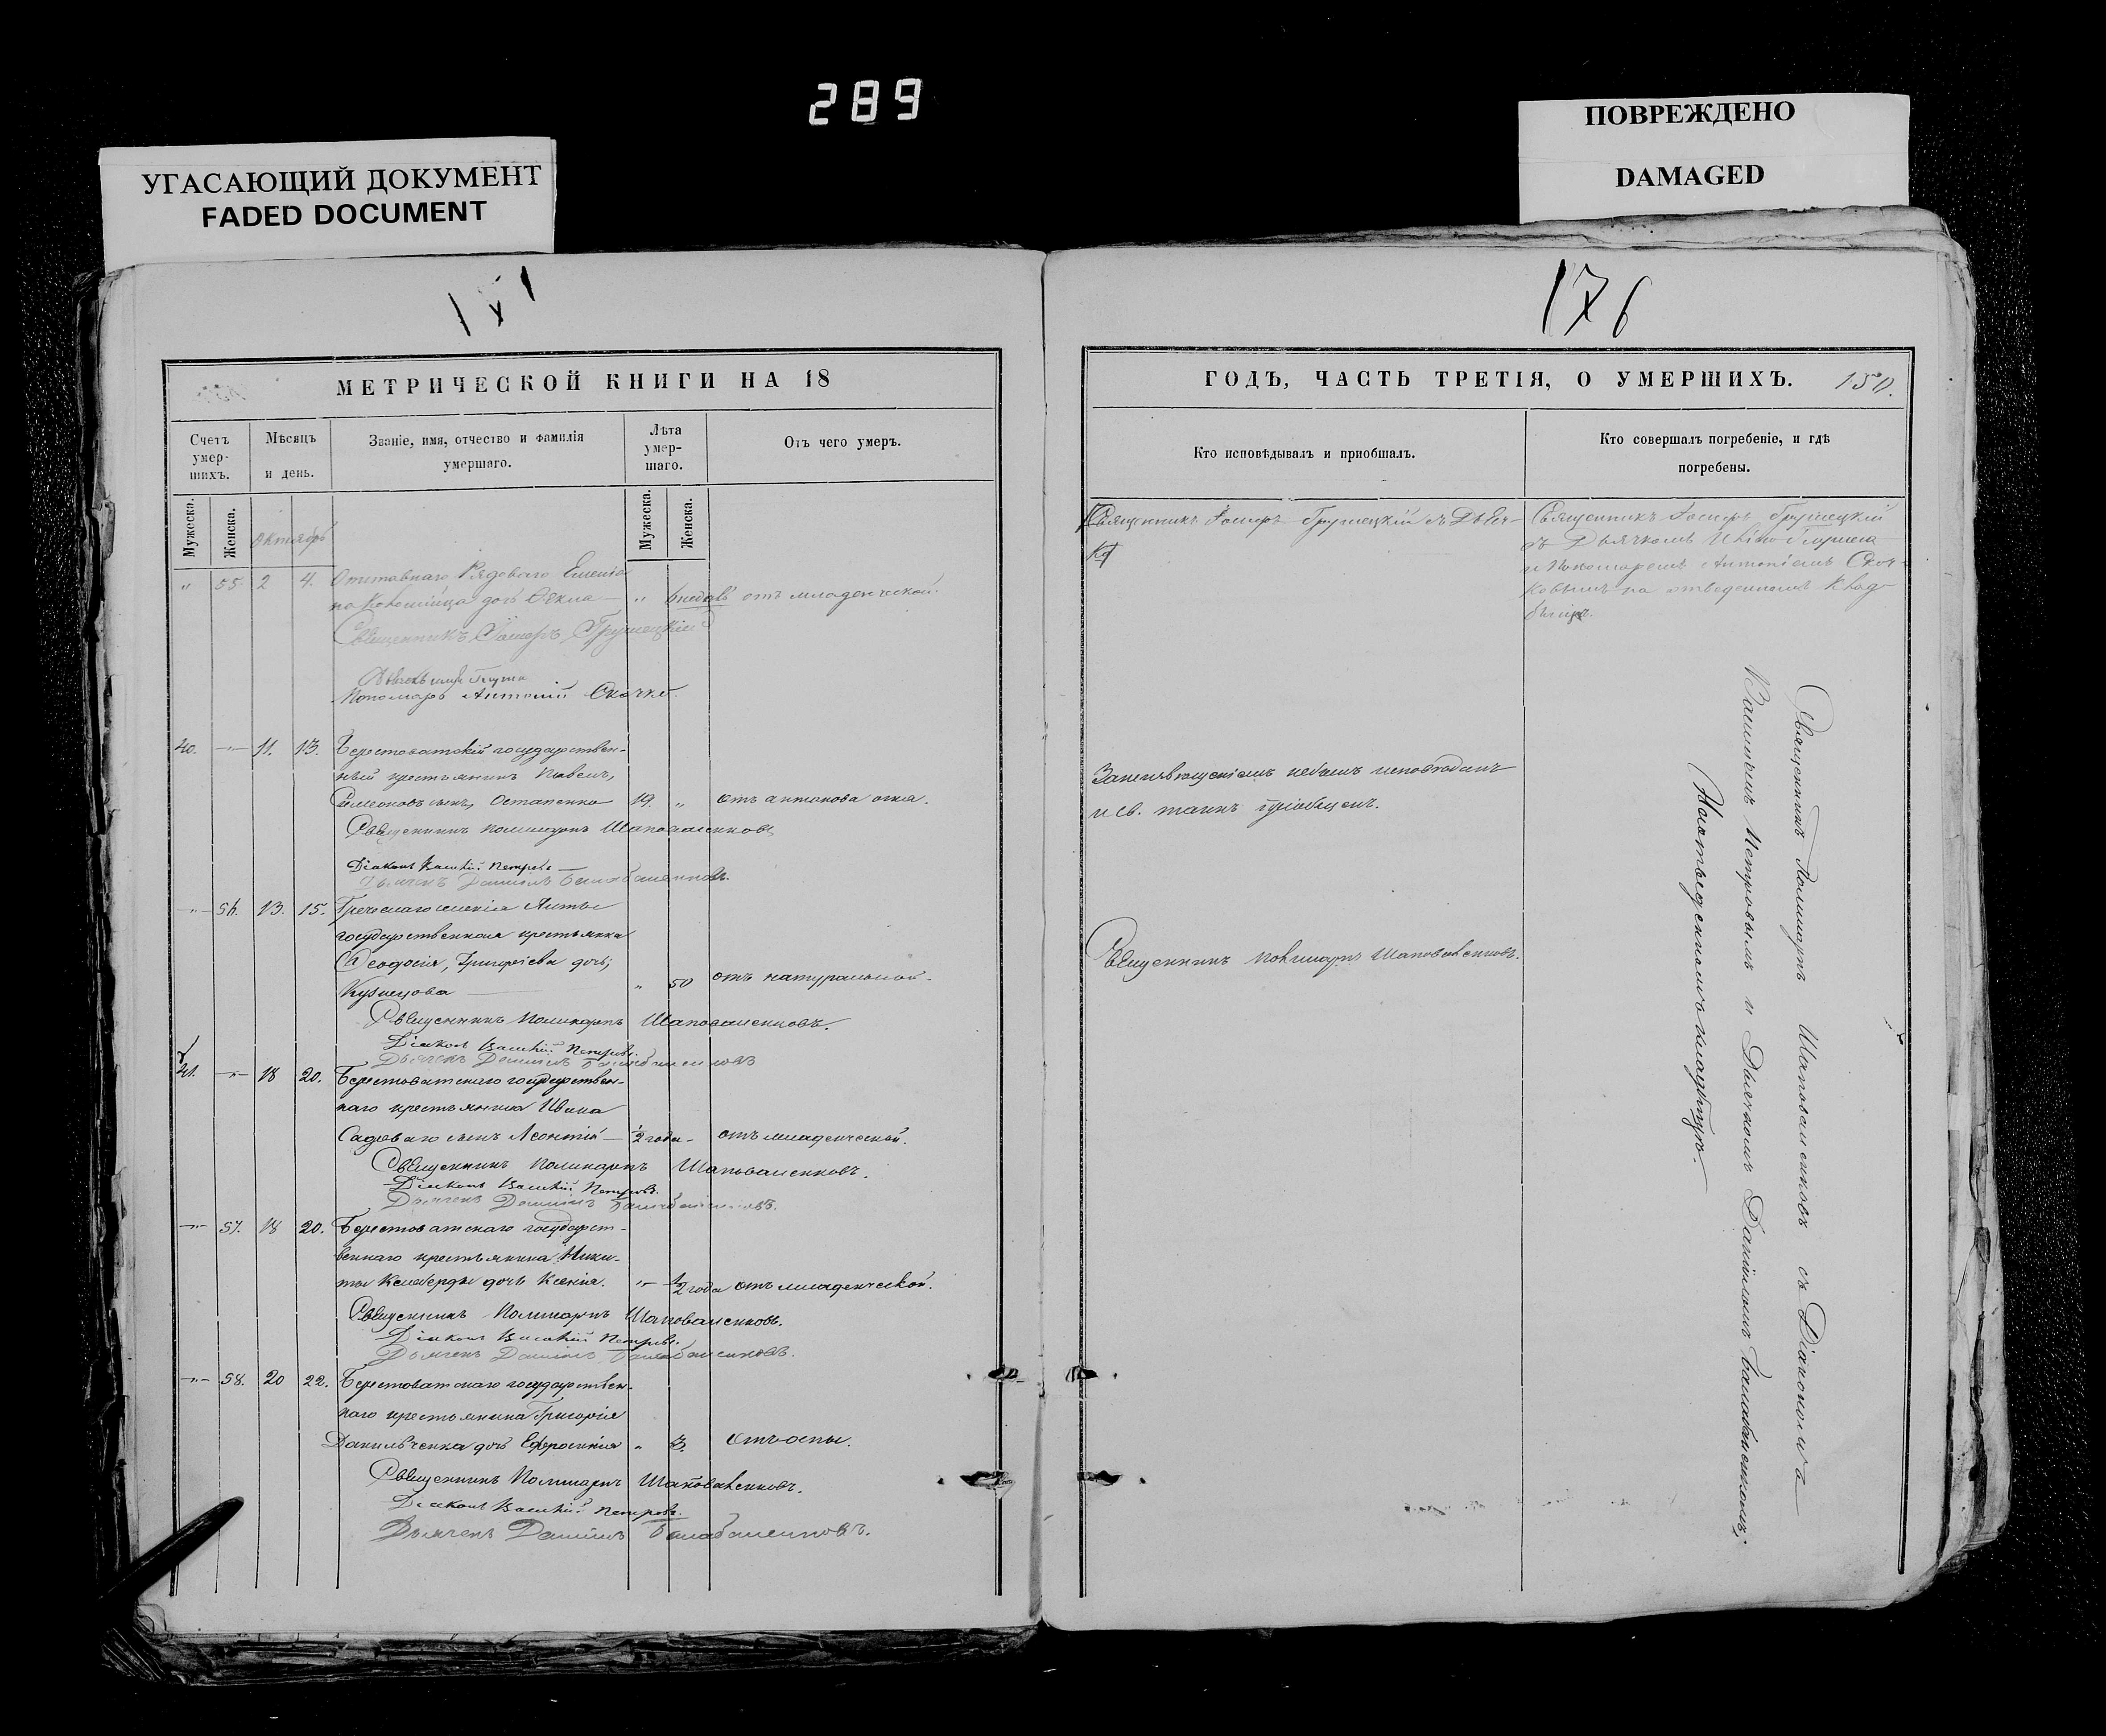 289
УГАСАЮЩИЙ ДОКУМЕНТ
FADED DOCUMENT
ПОВРЕЖДЕНО
DAMAGED
176
МЕТРИЧЕСКОЙ КНИГИ НА 18
Счетъ умер-шихъ.
Мѣсяцъ и день.
Званіе, имя, отчество и фамилія умершаго.
Лѣта умер-шаго.
Отъ чего умеръ.
Мужеска.
Женска.
Мужеска.
Женска.
Октябрь
" 55 2 4. Отставнаго Рядоваго
дочь Ѳекла — " отъ младенческой.
Священникъ Грушецкій
Пономарь Антоній Скочко.
40. —"— 11. 13. Берестоватскій государствен-
ный крестьянинъ Павелъ,
Симеоновъ сынъ, Остапенко 19 " отъ антонова огня.
Священникъ Поликарпъ Шаповаленковъ
Діаконъ Василій Петровъ
Дьячекъ Даніилъ Балабаненковъ.
—"— 56. 13. 15. Греческаго селенія Ялты
государственная крестьянка
Ѳеодосія, Григоріева дочь,
Кузнецова — " 50 отъ натуральной.
Священникъ Поликарпъ Шаповаленковъ.
Діаконъ Василій Петровъ.
Дьячекъ Даніилъ Балабаненковъ
41. —"— 18 20. Берестоватскаго государствен-
наго крестьянина Ивана
Садоваго сынъ Леонтій — ½ года - отъ младенческой.
Священникъ Поликарпъ Шаповаленковъ.
Діаконъ Василій Петровъ.
Дьячекъ Даніилъ Балабаненковъ.
—"— 57. 18 20. Берестоватскаго государст-
веннаго крестьянина Ники-
ты дочь Ксенія. "— ½ года отъ младенческой.
Священникъ Поликарпъ Шаповаленковъ.
Діаконъ Василій Петровъ.
Дьячекъ Даніилъ Балабаненковъ.
—"— 58. 20 22. Берестоватскаго государствен-
наго крестьянина Григорія
Данильченка дочь Ефросинія " 3. Отъ оспы.
Священникъ Поликарпъ Шаповаленковъ.
Діаконъ Василій Петровъ.
Дьячекъ Даніилъ Балабаненковъ.
ГОДЪ, ЧАСТЬ ТРЕТІЯ, О УМЕРШИХЪ. 150.
Кто исповѣдывалъ и пріобщалъ.
Кто совершалъ погребеніе, и гдѣ погребены.
Священникъ Грушецкій
Священникъ Грушецкій
съ Дьячкомъ
и Пономаремъ Антоніемъ Скоч-
ковымъ на отведенномъ клад-
бищѣ.
и св. таинъ пріобщенъ.
Священникъ Поликарпъ Шаповаленковъ.
Священникъ Поликарпъ Шаповаленковъ съ Діакономъ
Василіемъ Петровымъ и Дьячкомъ Даніиломъ Балабаненковымъ,
На отведенномъ кладбищѣ.